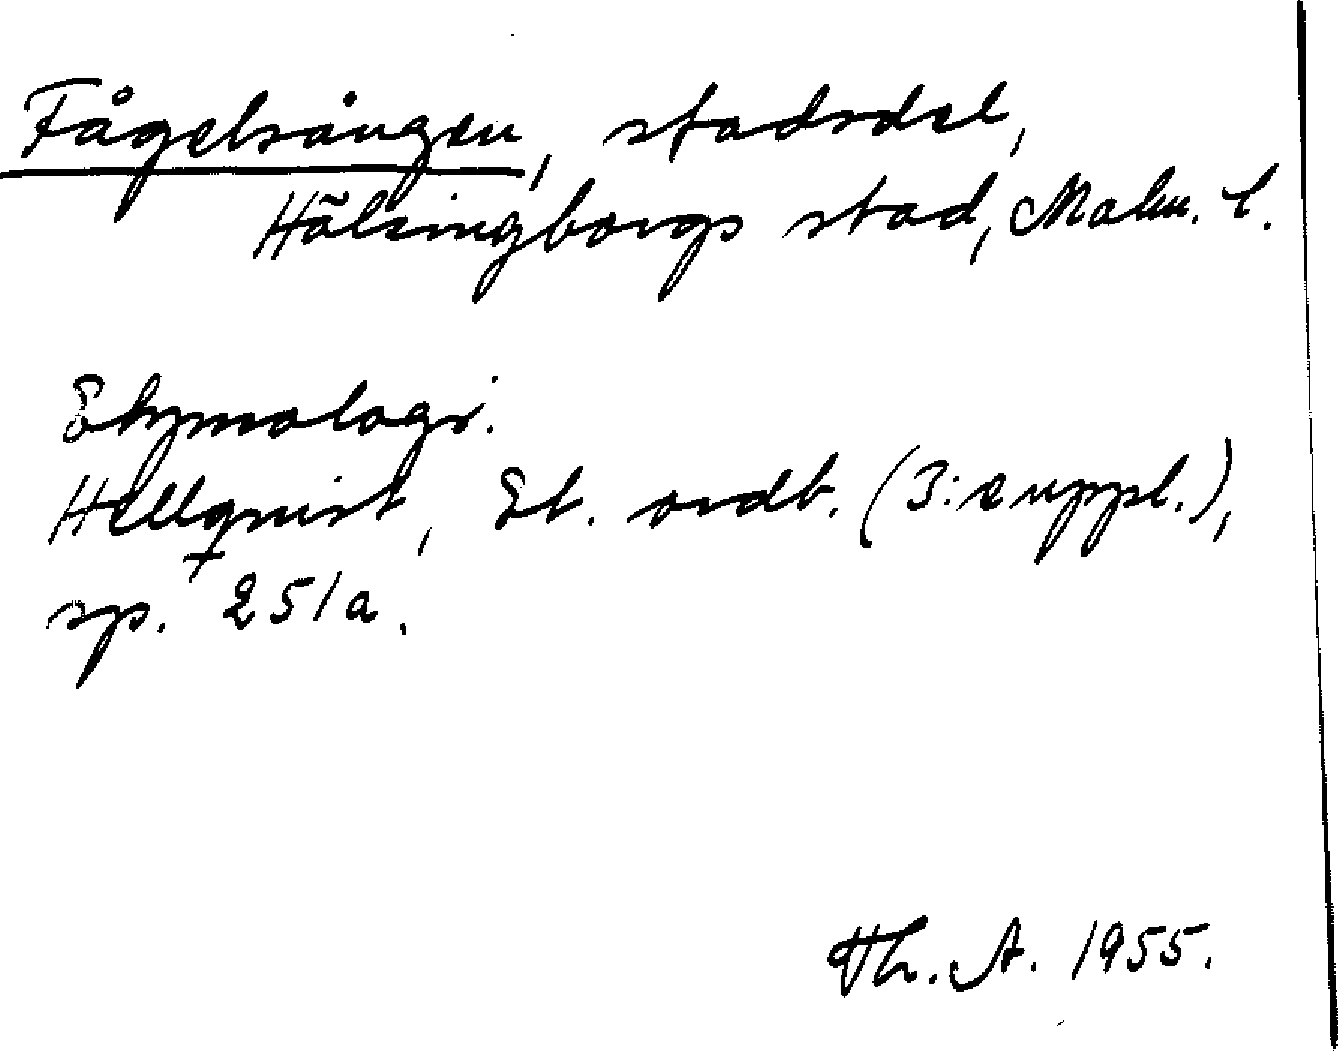 Fågelsången, stadsdel,
Hälsingborgs stad, Malm. l.
Etymologi.
Hellquist, Et. ordb. (3: suppl.),
sp. 251a.
Th. A. 1955.